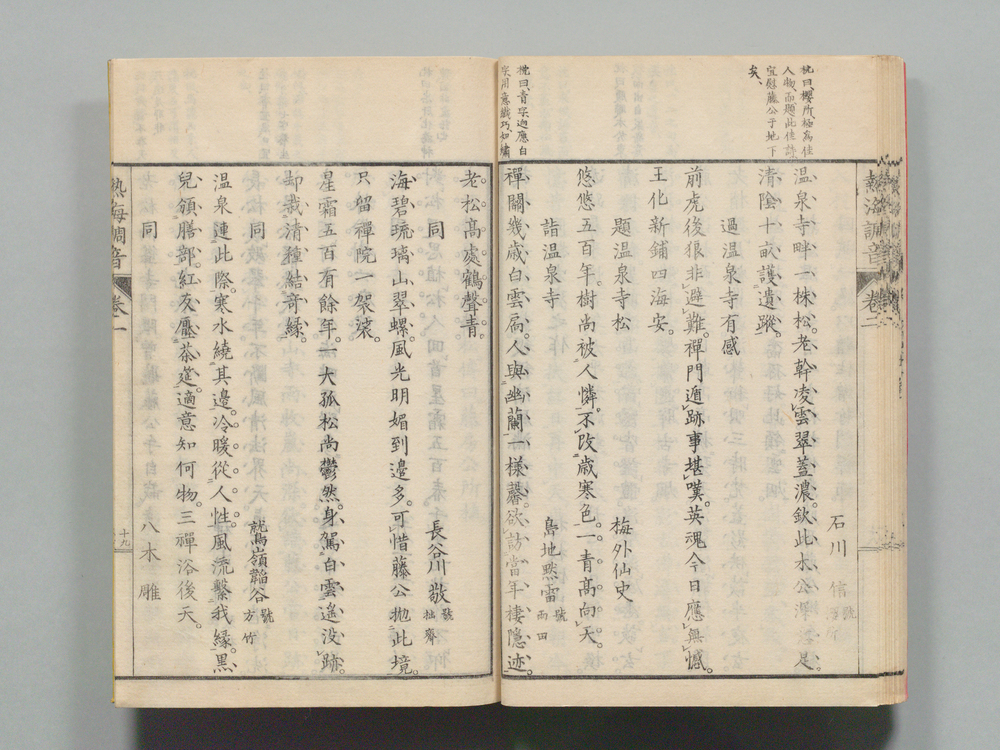 枕曰、櫻所極為佳
人物、而題此佳詩、
宜慰藤公于地下
矣、
石川
信
號
温泉寺畔一株松。老幹凌雲翠蓋濃。欽此水公深
足。
清陰十畝護遺蹤。
過温泉寺有感
前虎後狼非避難。禪門遁跡事堪嘆。英魂今日應無憾。
王化新鋪四海安。
題温泉寺松
梅外仙史
悠悠五百年。樹尚被人憐。不改歳寒色。一青高向天。
詣温泉寺
島地黙雷
號
雨田
枕曰、青字迎應白
字、用意纖巧、如繡
禪關幾歳白雲扃。人與幽蘭一様馨。欲訪當年棲隱迹。
老松高處鶴聲青。
同
長谷川敬
號
拙齋
海碧琉璃山翠螺。風光明媚到邉多。可惜藤公拋此境。
只留禪院一袈裟。
星霜五百有餘年。一大孤松尚鬱然。身駕白雲遙没跡。
却栽清種結奇緣。
同
鷲嶺韜谷
號
方竹
温泉連此際。寒水繞其邉。冷暖從人性。風流繫我緣。黒
兒頒膳部。紅友廛茶筵。適意知何物。三禪浴後天。
同
八木雕
熱海調音
卷一
十九